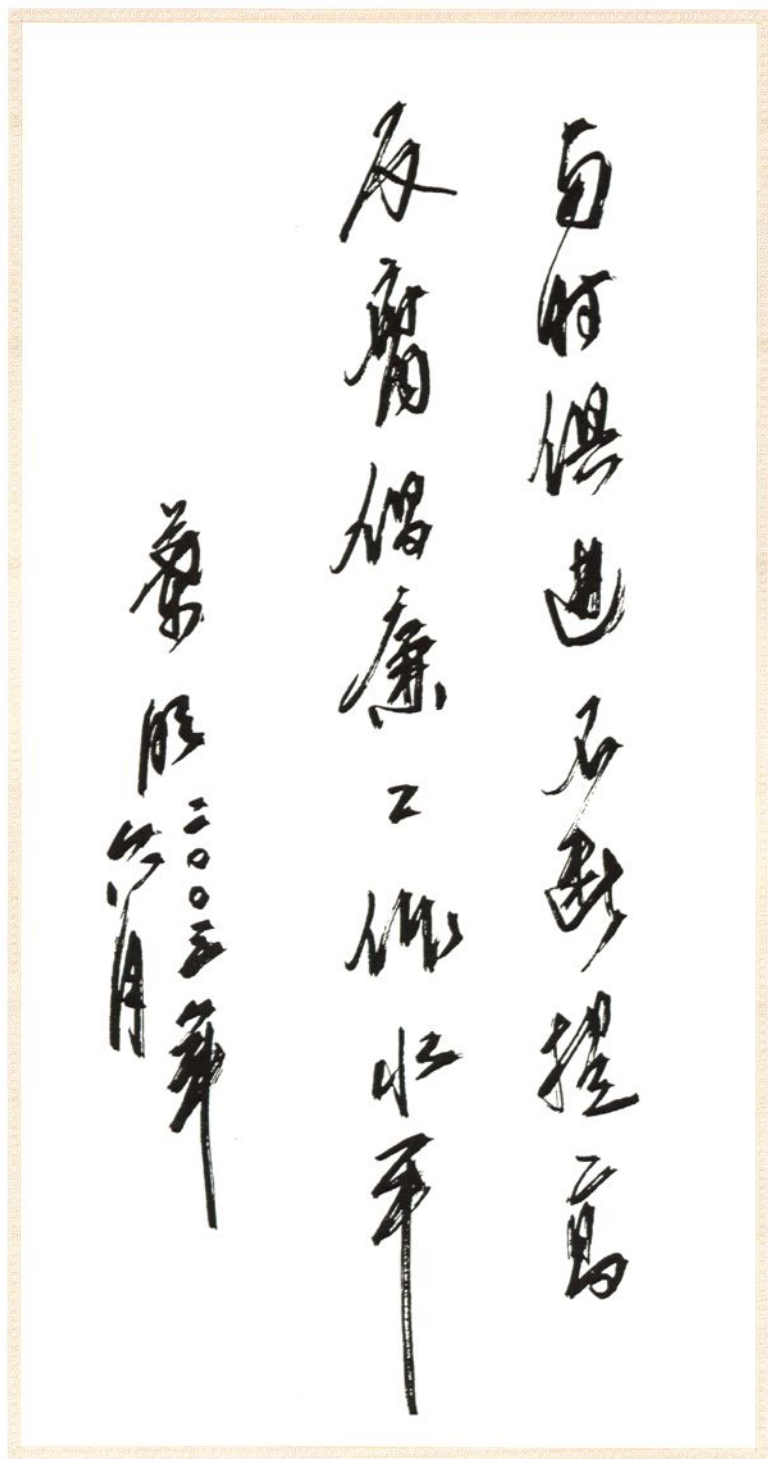 与时俱进不断提高
反腐倡廉工作水平
二〇〇三年
六月